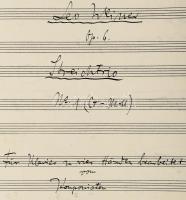 Leo Weiner
Op. 6.
Streichtrio
Nr. 1. (G-Moll)
Für Klavier zu vier Händen bearbeitet
vom
Komponisten